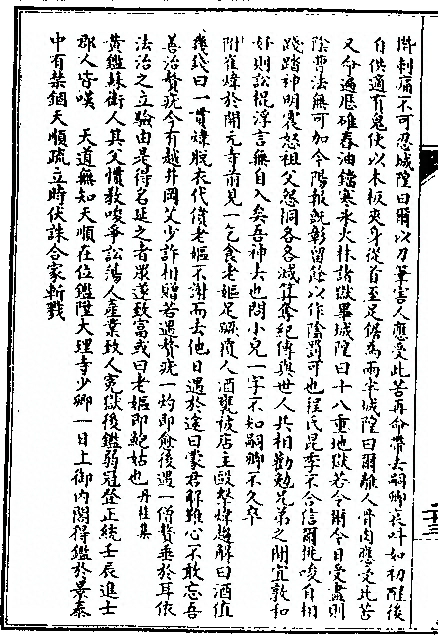 攢刺痛不可忍城隍曰爾以刀筆害人應受此苦再命帶去嗣卿哀叫如初醒後
自供適有鬼使以木板夾身從首至足鋸為兩半城隍曰爾離人骨肉應受此苦
又命遍歷碓舂油鐺寒氷火牀諸獄畢城隍曰十八重地獄若令爾今日受盡則
陰曹法無可加今陽報既彰留餘以作陰罰可也程氏昆季不合信爾挑唆自相
踐踏神明震怒祖父怨恫各各減算奪紀傳與世人共相勸勉兄弟之間宜敦和
好則訟棍浮言無自入矣吾神去也問小兒一字不知嗣卿不久卒
附崔煒於開元寺前見一乞食老嫗足蹶覆人酒甕被店主毆擊煒趨解曰酒值
幾錢曰一貫煒脫衣代償老嫗不謝而去他日遇於途曰蒙君解難心不敢忘吾
善治贅疣今有越井岡艾少許相贈若遇贅疣一灼即愈後遇一僧贅垂於耳依
法治之立驗由是得名延之者衆遂致富或曰老嫗即鮑姑也丹桂集
黃鑑蘇衛人其父慣教唆爭訟蕩人產業致人冤獄後鑑弱冠登正統壬辰進士
郡人皆嘆　天道無知天順在位鑑陞大理寺少卿一日上御內閣得鑑於景泰
中有禁錮天順疏立時伏誅合家斬戮